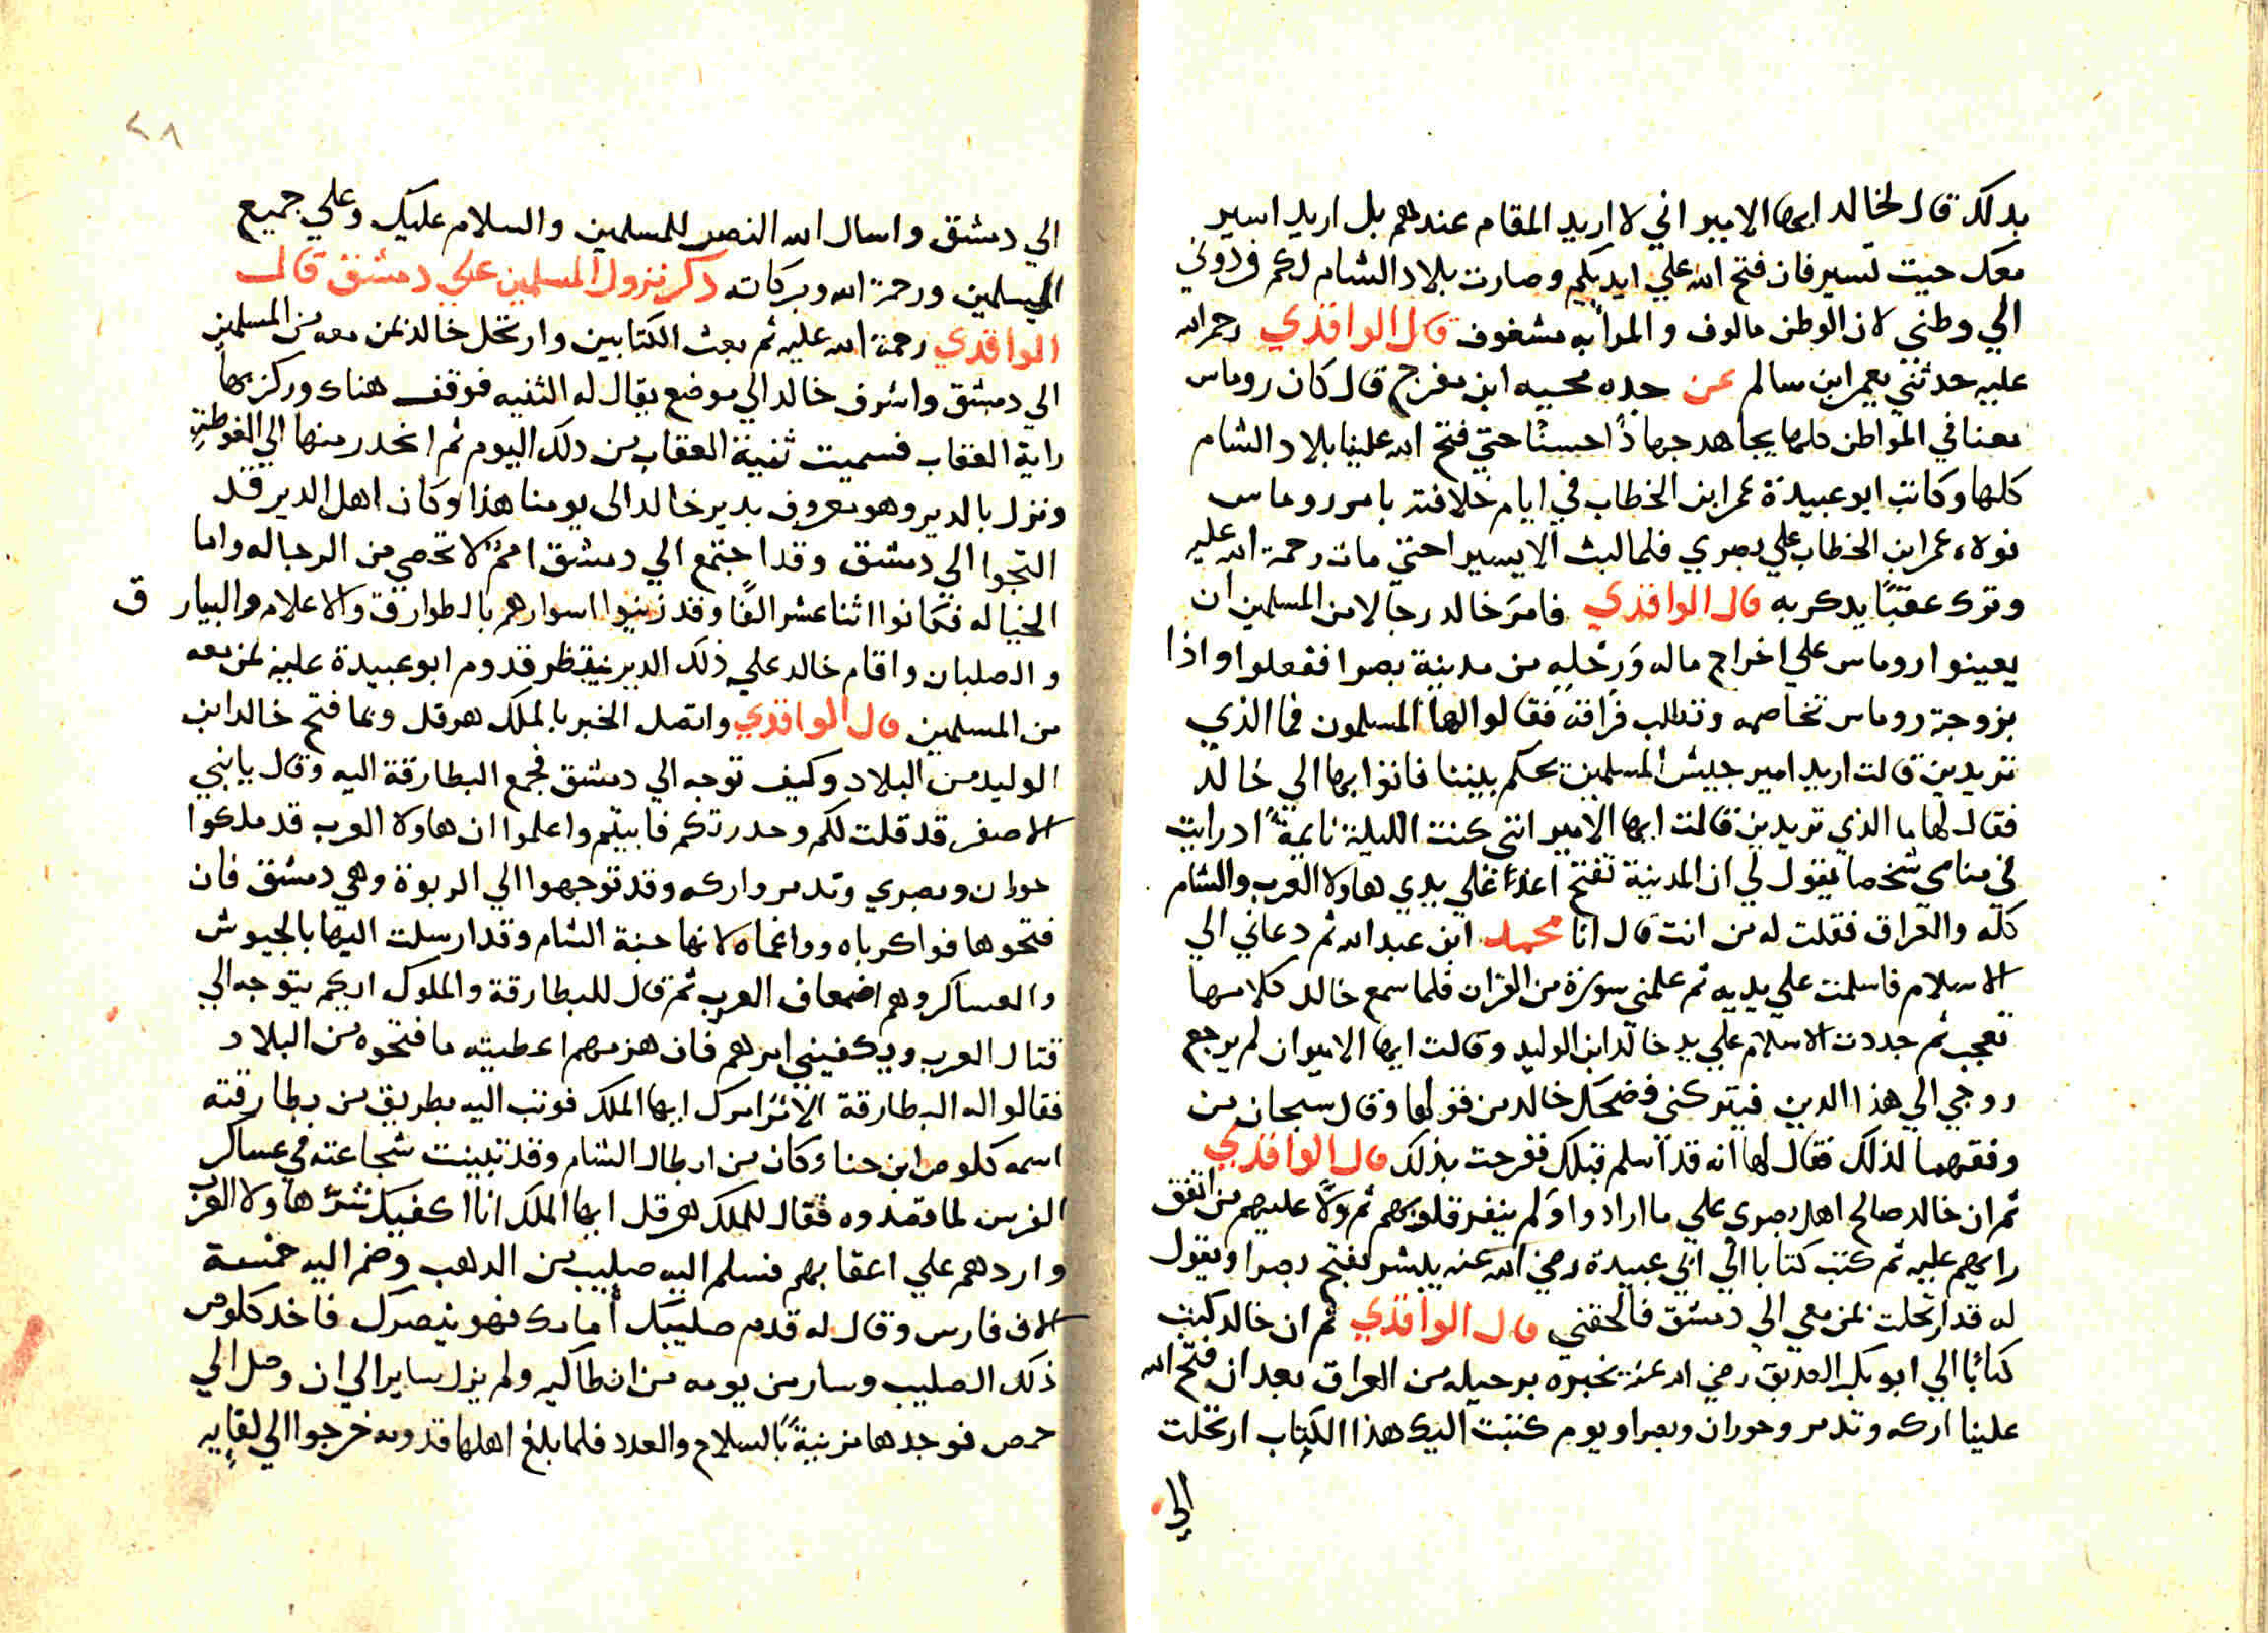 بدلك قال لخالد ايها الامير اني لا اريد المقام عندهم بل اريد اسير
معك حيت تسير فان فتح الله علي ايديكم وصارت بلاد الشام لكم فردوني
الي وطني لان الوطن مالوف والمرأ به مشغوف قال الواقدي رحمه الله
عليه حدثني يعمر ابن سالم عن جده محيبه ابن مفرج قال كان روماس
معنا في المواطن كلها يجاهد جهادًا حسنًا حتي فتح الله علينا بلاد الشام
كلها وكانت ابو عبيدة عمر ابن الخطاب في ايام خلافته بامر روماس
فولاه عمر ابن الخطاب علي بصري فلما لبث الا يسيرا حتي مات رحمة الله عليه
وترك عقبًا يدكر به قال الواقدي فامر خالد رجالا من المسلمين ان
يعينوا روماس علي اخراج ماله ورحله من مدينة بصرا ففعلوا واذا
بزوجة روماس تخاصمه وتطلب فراقه فقالوا لها المسلمون فما الذي
تريدين قالت اريد امير جيش المسلمين يحكم بيننا فانوا بها الي خالد
فقال لها ما الذي تريدين قالت ايها الامير انني كنت الليلة نايمة ادرايت
في منامي شخصا يقول لي ان المدينة تفتح اغداً علي يدي هاولا العرب والشام
كله والعراق فقلت له من انت قال انا محمد ابن عبد الله ثم دعاني الي
الاسلام فاسلمت علي يديه ثم علمني سورة من القران فلما سمع خالد كلامها
تعجب ثم جددت الاسلام علي يد خالد ابن الوليد وقالت ايها الامير ان لم يرجع
روجي الي هذا الدين فيتركني فضحك خالد من قولها وقال سبحان من
وفقهما لذلك فقال لها انه قد اسلم قبلك ففرحت بذلك قال الواقدي
ثم ان خالد صالح اهل بصري علي ما ارادوا ولم ينفر قلوبهم ثم ولا عليهم من اتفق
رايهم عليه ثم كتب كتابا الي ابي عبيدة رضي الله عنه يبشر بفتح بصرا ويقول
له قد ارتحلت بمن معي الي دمشق فالحقني قال الواقدي ثم ان خالد كتب
كتابًا الي ابو بكر الصديق رضي الله عنه يخبره برحيله من العراق بعد ان فتح الله
علينا اركه وتدمر وحوران وبصرا ويوم كتبت اليك هذا الكتاب ارتحلت
الي
٢٨
الي دمشق واسال الله النصر للمسلمين والسلام عليك وعلي جميع
المسلمين ورحمة الله وبركاته دكر نزول المسلمين علي دمشق قال
الواقدي رحمة الله عليه ثم بعث الكتابين وارتحل خالد بمن معه من المسلمين
الي دمشق واشرف خالد الي موضع يقال له الثنيه فوقف هناك وركز بها
راية العقاب فسميت ثنية العقاب من دلك اليوم ثم انحدر منها الي الغوطة
ونزل بالدير وهو معروف بدير خالد الى يومنا هذا وكان اهل الدير قد
التجوا الي دمشق وقد اجتمع الي دمشق اممٌ لا تحصي من الرجاله واما
الخياله فكانوا اثنا عشر الفًا وقد زينوا اسوارهم بالطوارق والاعلام والبيارق
والصلبان واقام خالد علي ذلك الدير ينتظر قدوم ابو عبيدة عليه بمن معه
من المسلمين قال الواقدي واتصل الخبر بالملك هرقل وبما فتح خالد ابن
الوليد من البلاد وكيف توجه الي دمشق فجمع البطارقة اليه وقال يا بني
الاصفر قد قلت لكم وحدرتكم فابيتم واعلموا ان هاولا العرب قد ملكوا
حوران وبصري وتدمر واركه وقد توجهوا الي الربوة وهي دمشق فان
فتحوها فواكرباه وواغماه لانها جنة الشام وقد ارسلت اليها بالجيوش
والعساكر وهم اضعاف العرب ثم قال للبطارقة والملوك ايكم يتوجه الي
قتال العرب ويكفيني امرهم فان هزمهم اعطيته ما فتحوه من البلاد
فقالوا له البطارقة الامر امرك ايها الملك فوثب اليه بطريق من بطارقته
اسمه كلوص ابن حنا وكان من ابطال الشام وقد تبينت شجاعته في عساكر
الفرس لما قصدوه فقال للملك هرقل ايها الملك انا اكفيك شر هاولا العرب
واردهم علي اعقابهم فسلم اليه صليب من الدهب وضم اليه خمسة
الاف فارس وقال له قدم صليبك أمامك فهو ينصرك فاخد كلوص
ذلك الصليب وسار من يومه من انطاكيه ولم يزل سايرا الي ان وصل الي
حمص فوجدها مزينيةً بالسلاح والعدد فلما بلغ اهلها قدومه خرجوا الي لقايه